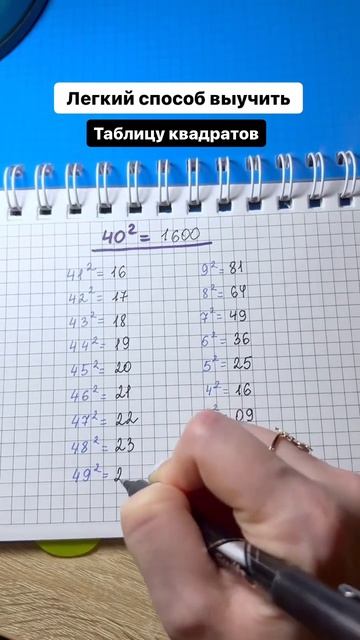 Легкий способ выучить
Таблицу квадратов
40² = 1600
41² = 16
42² = 17
43² = 18
44² = 19
45² = 20
46² = 21
47² = 22
48² = 23
49² = 2
9² = 81
8² = 64
7² = 49
6² = 36
5² = 25
4² = 16
² = 09